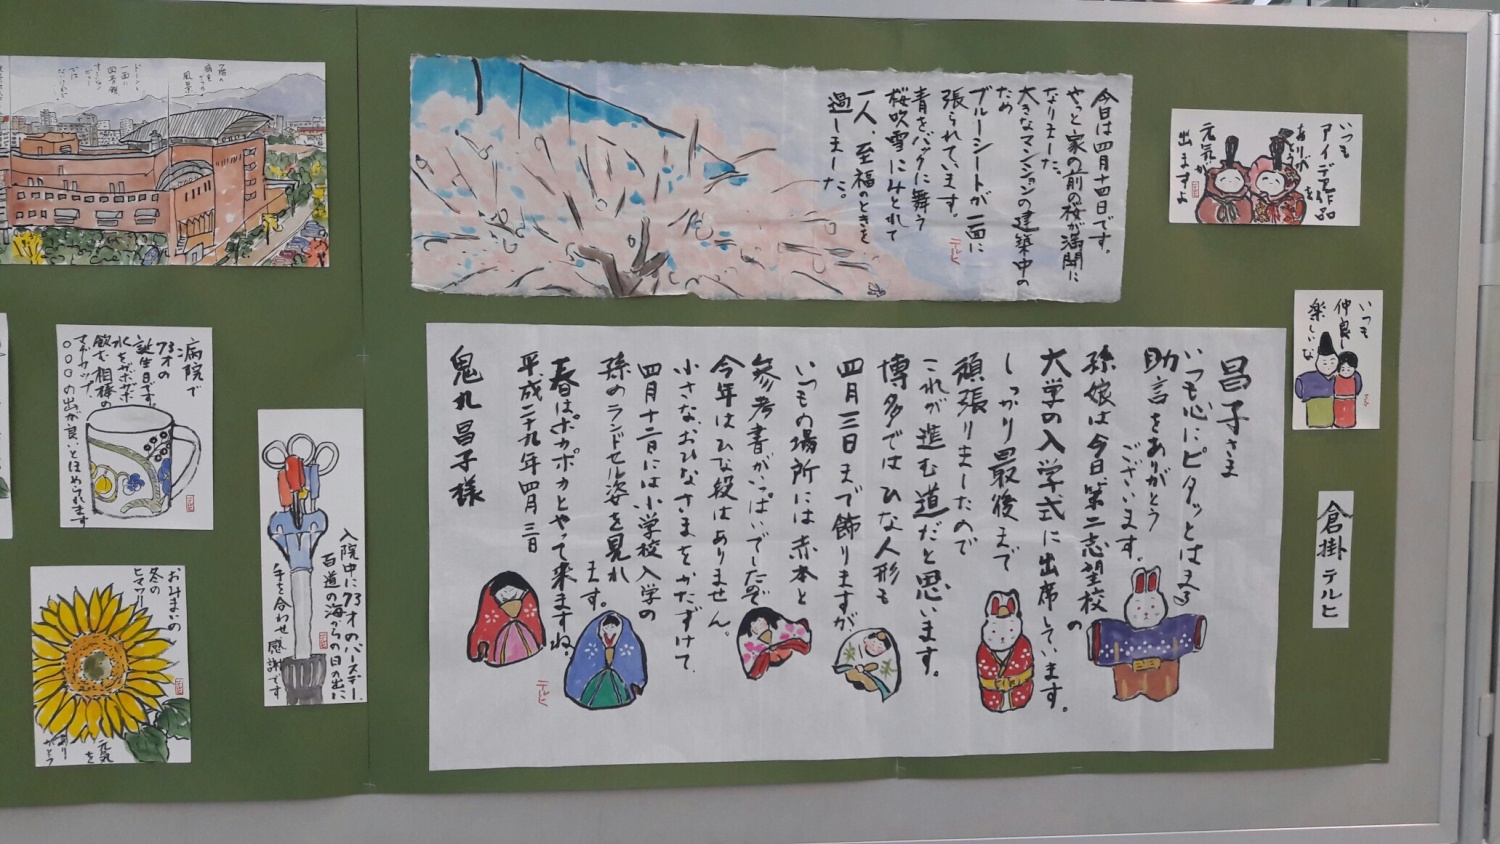 今日は四月十四日です。
やっと家の前の桜が満開に
なりました。
大きなマンションの建築中の
ため
ブルーシートが一面に
張られています。
青をバックに舞う
桜吹雪にみとれて
一人、至福のときを
過しました。
テルヒ
いつも
アイデア作品
ありがとうを
元気が
出ますよ
いつも
仲良し
楽しいな
倉掛テルヒ
昌子さま
いつも心にピタッとはまる
助言をありがとう
ございます。
孫娘は今日第二志望校の
大学の入学式に出席しています。
しっかり最後まで
頑張りましたので
これが進む道だと思います。
博多ではひな人形も
四月三日まで飾りますが
いつもの場所には赤本と
参考書がいっぱいでしたので
今年はひな段はありません。
小さなおひなさまをかたずけて、
四月十二日には小学校入学の
孫のランドセル姿を見れ
ます。
春はポカポカとやって来ますね。
平成二十九年四月三日
鬼丸昌子様
テルヒ
病室からの
風景
病院で
73才の
誕生日です。
水をガボガボ
飲む相棒の
マグカップ。
〇〇〇の出が良いとほめられます
入院中に73才のバースデー
百道の海からの日の出に
手を合わせ感謝です
おみまいの
冬の
ヒマワリ
元気を
ありがとう